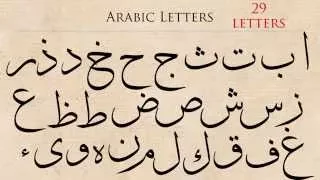 Arabic Letters
29
LETTERS
ا ب ت ث ج ح خ د ذ ر
ز س ش ص ض ط ظ ع
غ ف ق ك ل م ن ه و ى ء